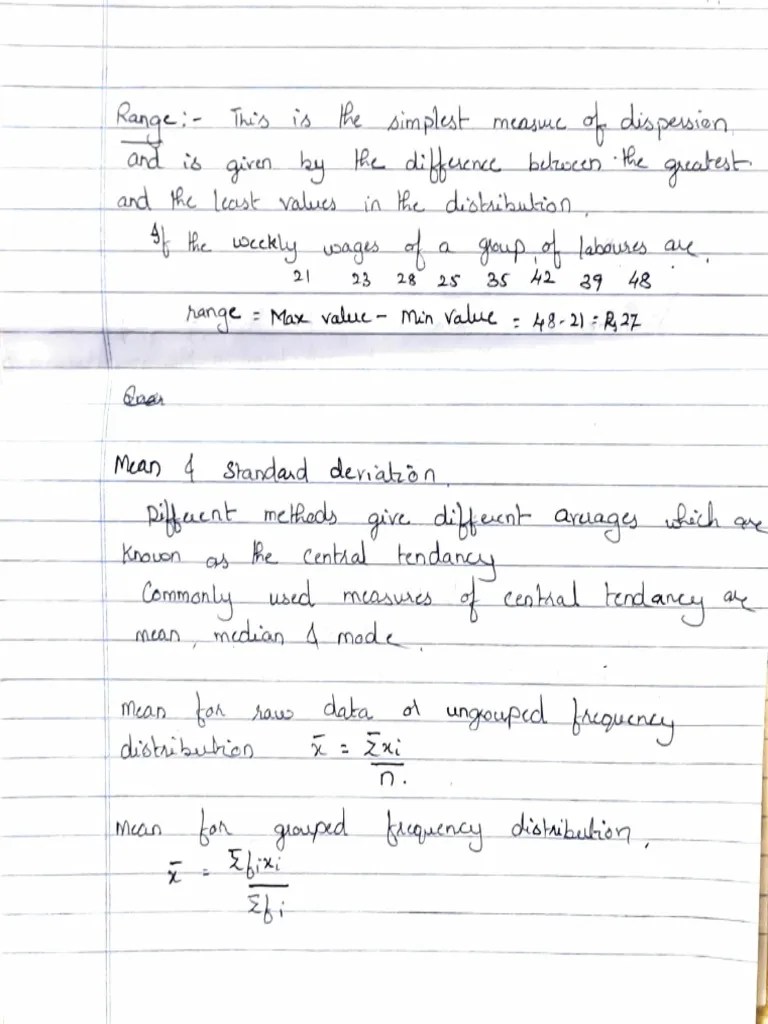 Range:- This is the simplest measure of dispersion
and is given by the difference between the greatest
and the least values in the distribution.
If the weekly wages of a group of laboures are.
21 23 28 25 35 42 39 48
range = Max value - Min value = 48-21 = Rs 27
Mean & standard deviation.
Different methods give different averages which are
known as the central tendancy
Commonly used measures of central tendancy are
mean, median & mode.
Mean for raw data or ungrouped frequency
distribution x̄ = Σxi
n.
Mean for grouped frequency distribution,
x̄ = Σfixi
Σfi